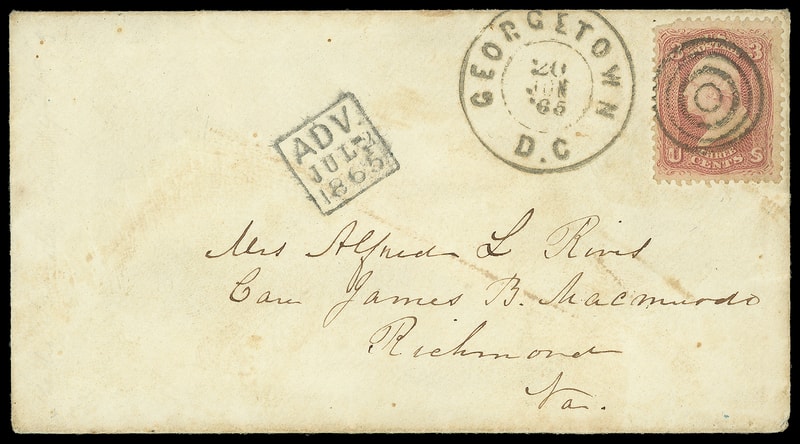 GEORGETOWN
20
JUN
'65
D.C
3 POSTAGE 3
U THREE S
CENTS
ADV.
JUL 2
1865
Mrs Alfred L Rives
Care James B. Macmurdo
Richmond
Va.